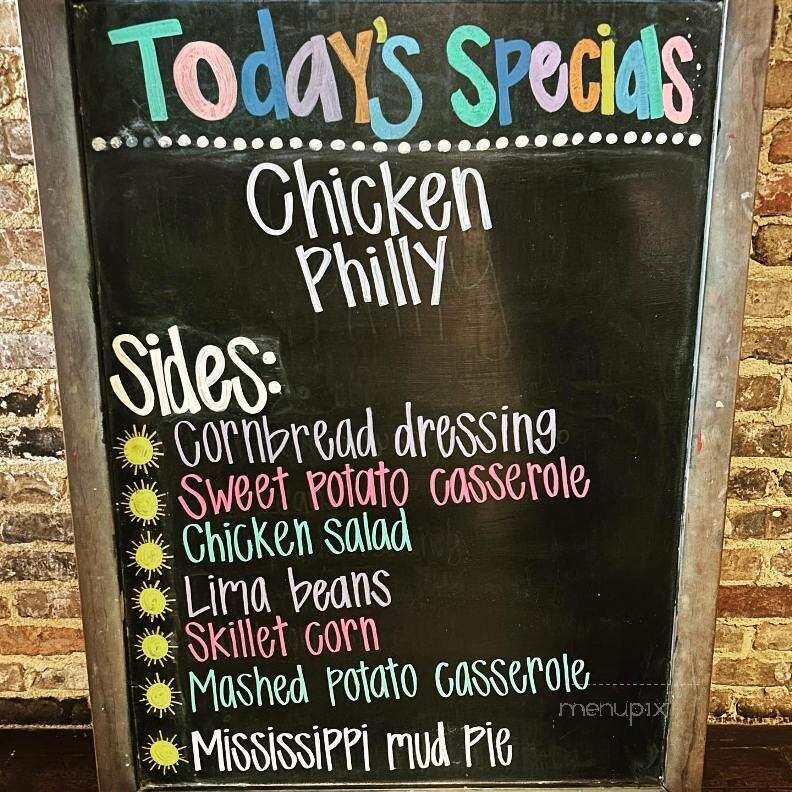 Today's Specials
Chicken
Philly
Sides:
Cornbread dressing
Sweet potato casserole
Chicken salad
Lima beans
Skillet corn
Mashed potato casserole
menupix
Mississippi mud pie